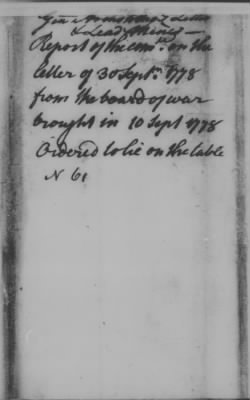 Genl Armstrong's Letter
& Lead Mines —
Report of the comee. on the
letter of 30 Septr. 1778
from the board of war
brought in 10 Sept 1778
Ordered to lie on the table
N 61